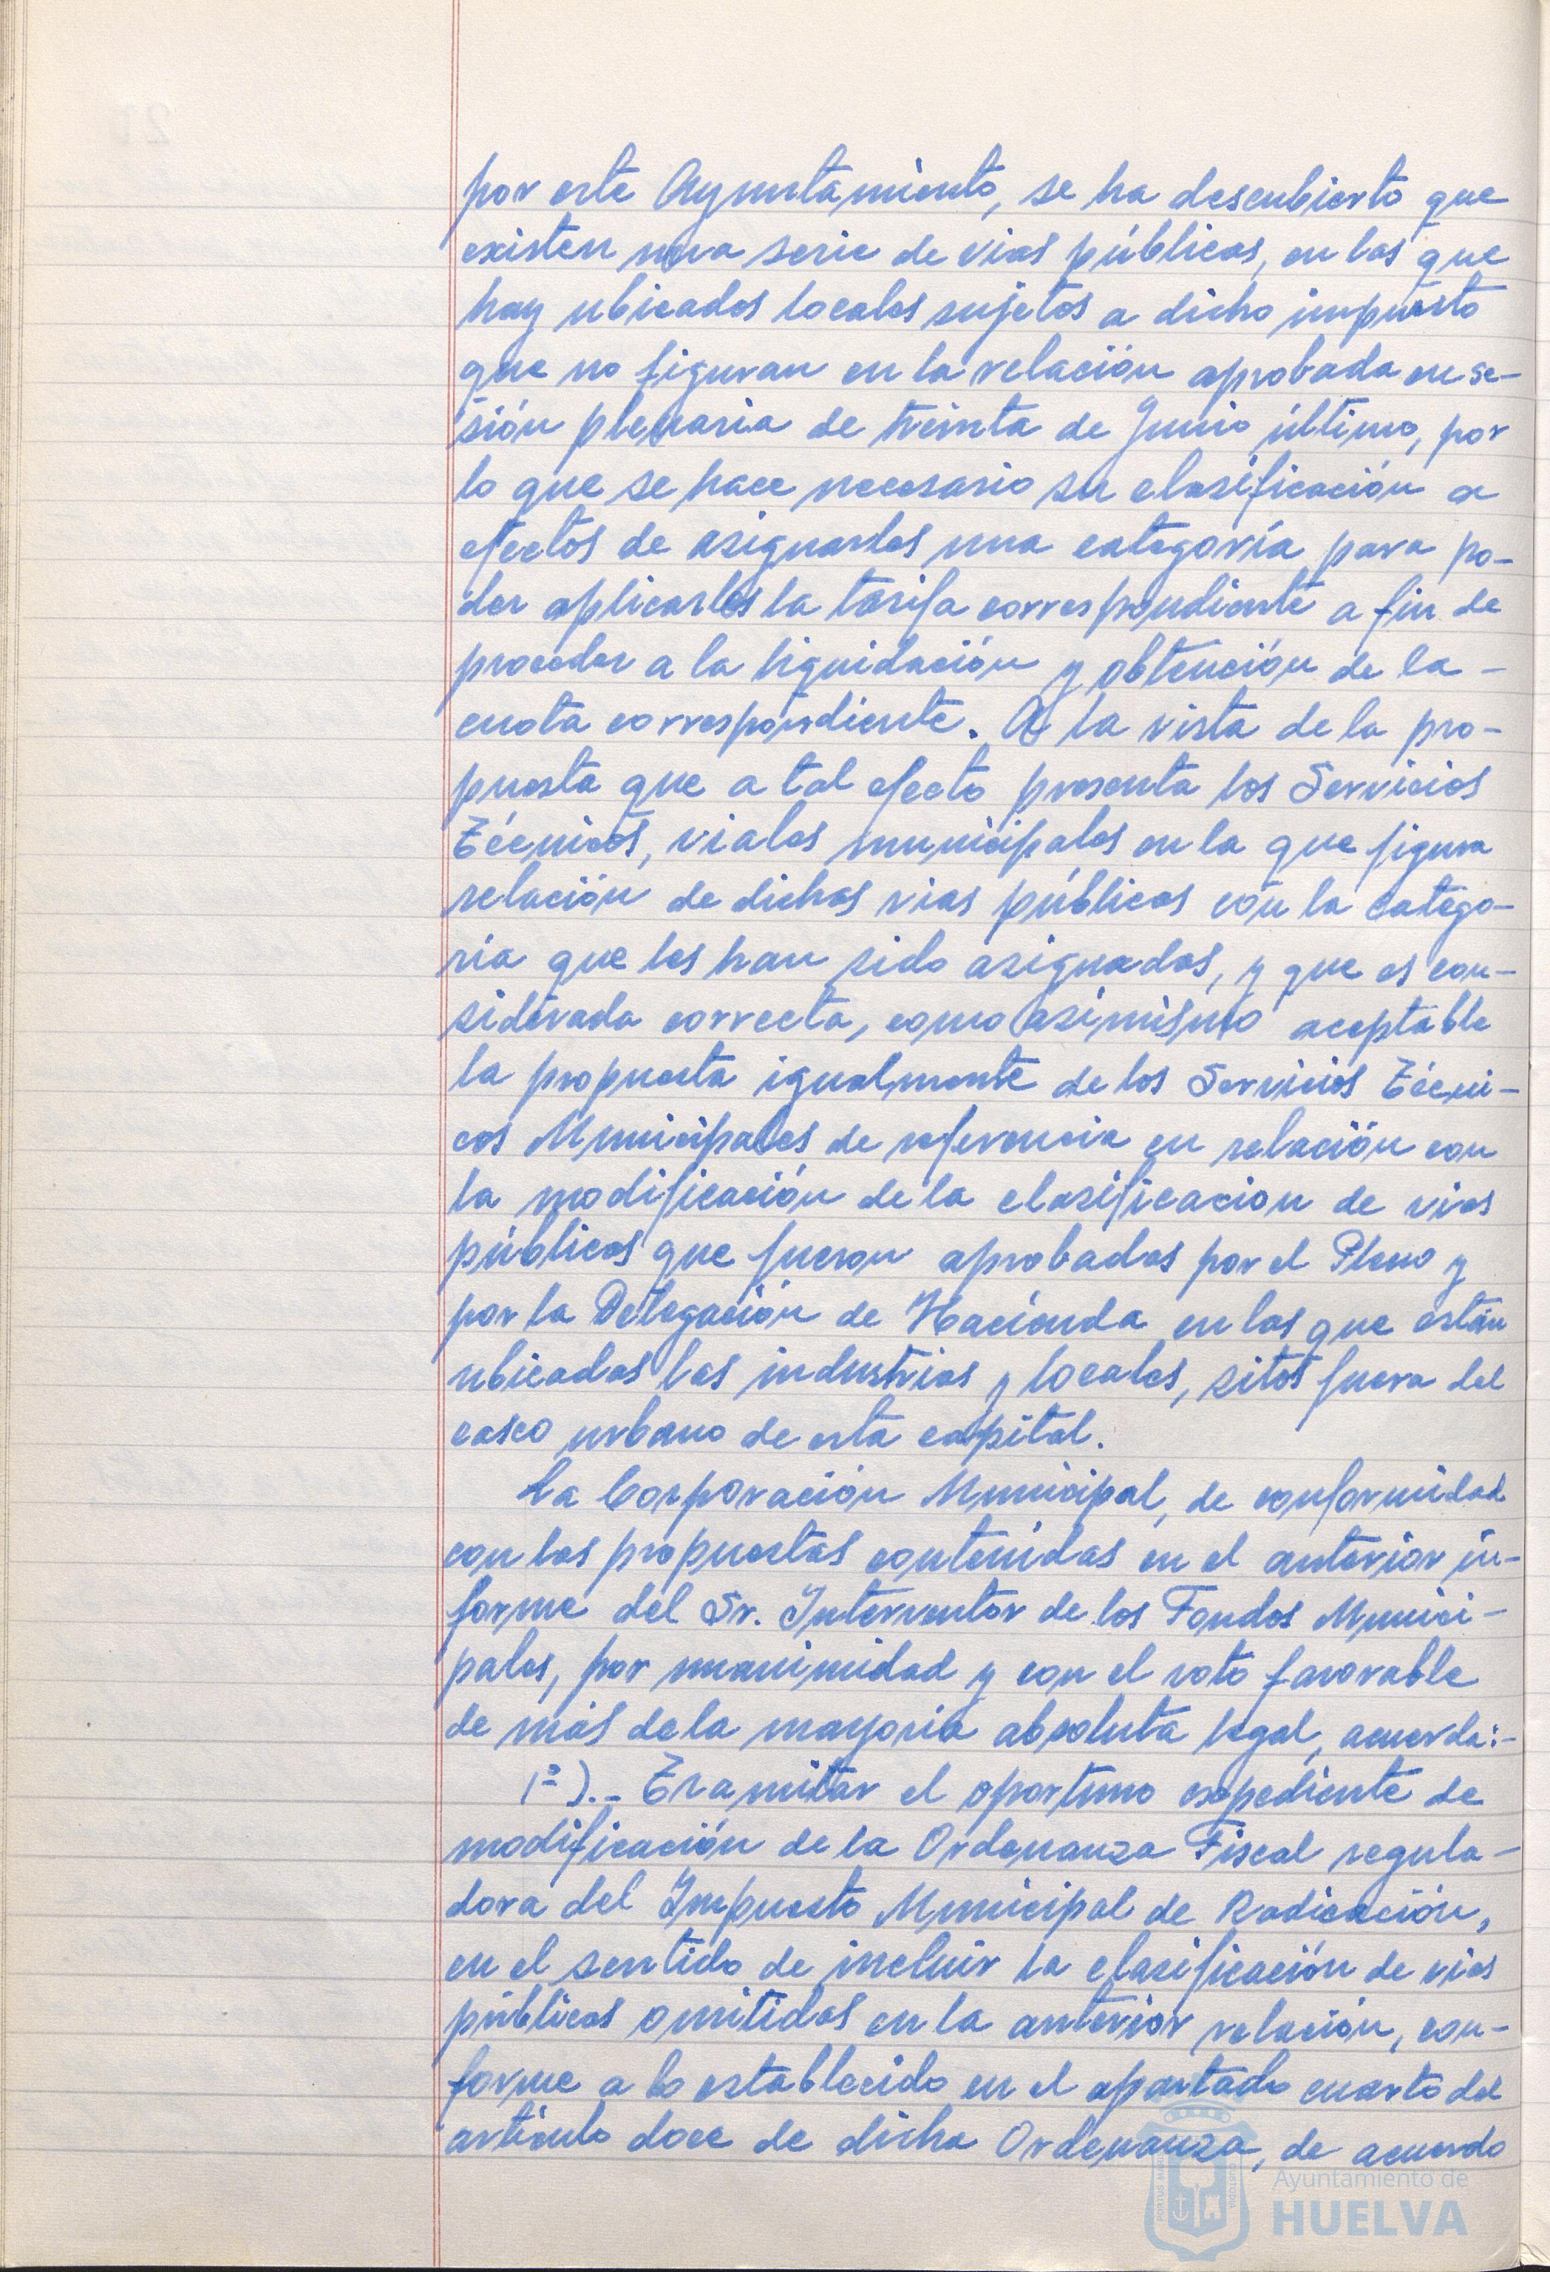 por este Ayuntamiento, se ha descubierto que
existen una serie de vias públicas, en las que
hay ubicados locales sujetos a dicho impuesto
que no figuran en la relación aprobada en se-
sión plenaria de treinta de Junio último, por
lo que se hace necesario su clasificación a
efectos de asignarles una categoría para po-
der aplicarles la tarifa correspondiente a fin de
proceder a la liquidación y obtención de la -
cuota correspondiente. A la vista de la pro-
puesta que a tal efecto presenta los Servicios
Técnicos, viales municipales en la que figura
relación de dichas vias públicas con la catego-
ria que les han sido asignadas, y que es con-
siderada correcta, como asimismo aceptable
la propuesta igualmente de los Servicios Técni-
cos Municipales de referencia en relación con
la modificación de la clasificacion de vias
públicas que fueron aprobadas por el Pleno y
por la Delegación de Hacienda en las que están
ubicadas las industrias y locales, sitos fuera del
casco urbano de esta capital.
La Corporación Municipal, de conformidad
con las propuestas contenidas en el anterior in-
forme del Sr. Interventor de los Fondos Munici-
pales, por unanimidad y con el voto favorable
de más de la mayoria absoluta legal, acuerda:-
1º).- Tramitar el oportuno expediente de
modificación de la Ordenanza Fiscal regula-
dora del Impuesto Municipal de Radicación,
en el sentido de incluir la clasificación de vias
públicas omitidas en la anterior relación, con-
forme a lo establecido en el apartado cuarto del
artículo doce de dicha Ordenanza, de acuerdo
Ayuntamiento de
HUELVA